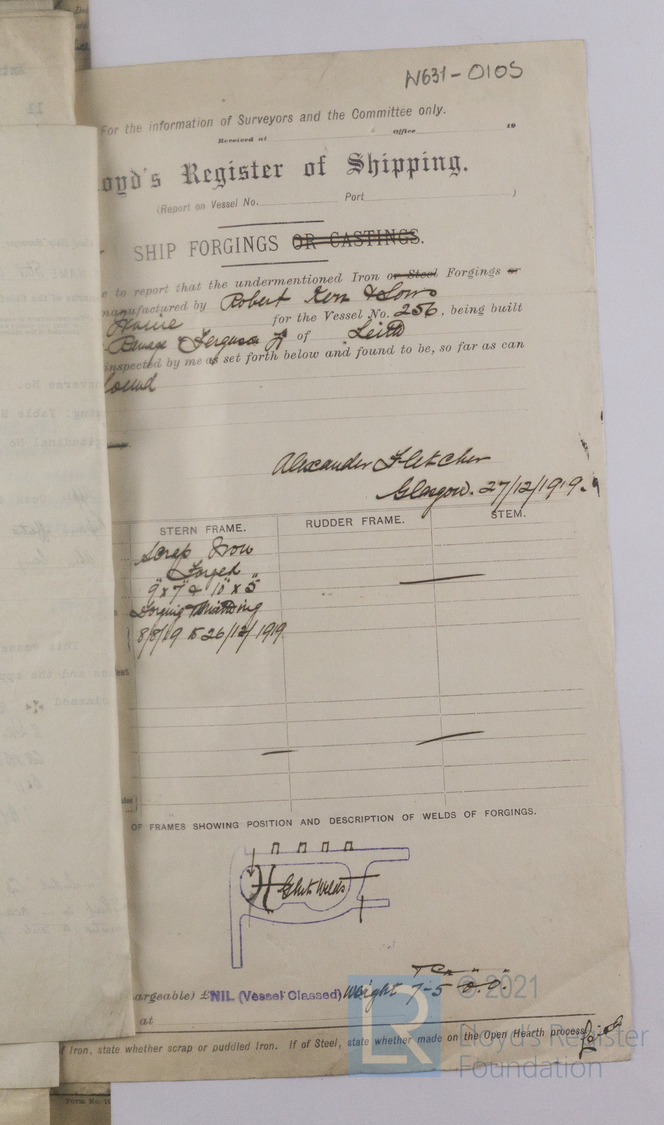 N631-0105
For the information of Surveyors and the Committee only.
Received at Office 19
oyd's Register of Shipping.
(Report on Vessel No. Port )
SHIP FORGINGS OR CASTINGS.
e to report that the undermentioned Iron or Steel Forgings or
manufactured by Robert & Sons
for the Vessel No. 256, being built
& Ferguson of Leith
inspected by me as set forth below and found to be, so far as can
ound
Alexander Fletcher
Glasgow. 27/12/1919.
STERN FRAME. RUDDER FRAME. STEM.
Scrap Iron
Forged
9" x 7" & 10" x 5"
Forging
8/8/19 to 26/12/1919
OF FRAMES SHOWING POSITION AND DESCRIPTION OF WELDS OF FORGINGS.
Welds
argeable) £ NIL (Vessel Classed) Weight 7-5 0. 0.
at
f Iron, state whether scrap or puddled Iron. If of Steel, state whether made on the Open Hearth process
Form No. 1
LR
© 2021
Lloyd's Register
Foundation